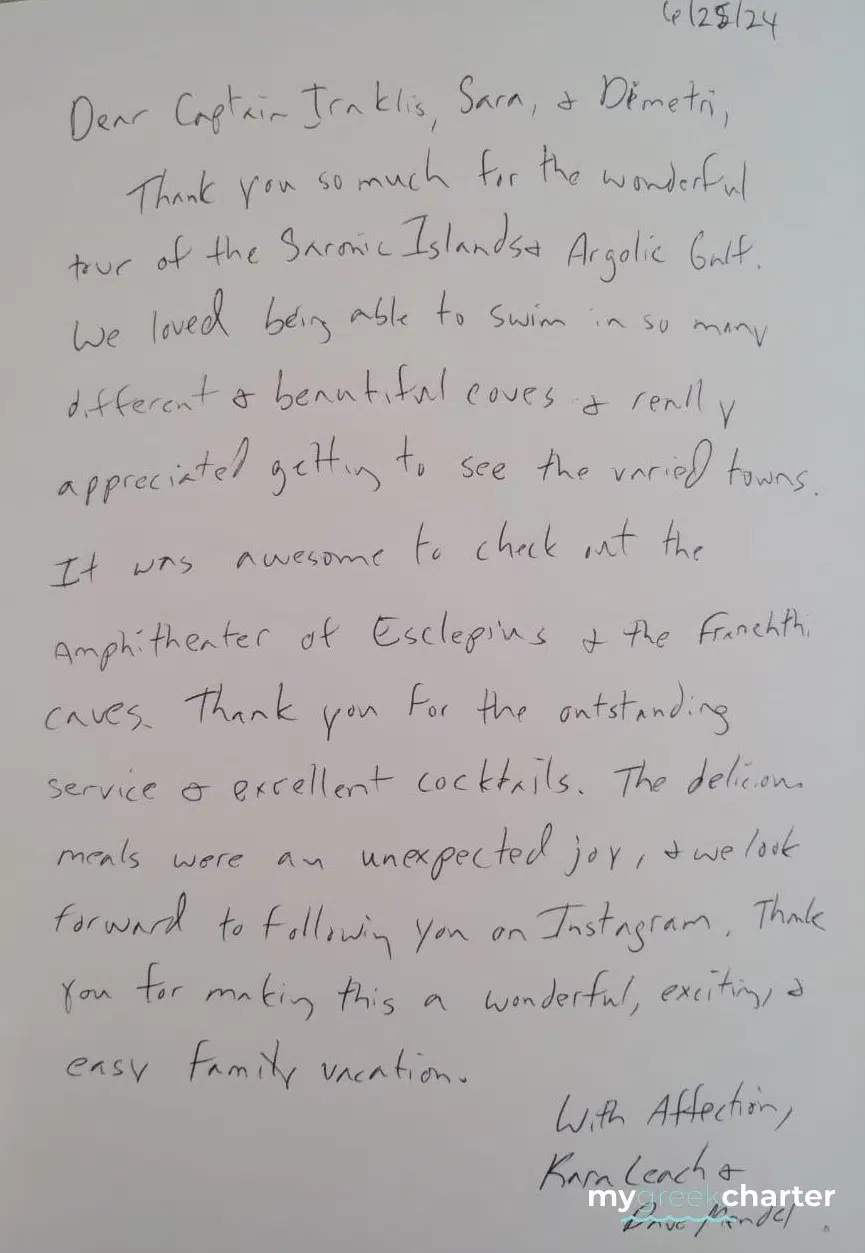 6/28/24
Dear Captain Iraklis, Sara, & Dimetri,
Thank you so much for the wonderful
tour of the Saronic Islands & Argolic Gulf.
We loved being able to swim in so many
different & beautiful coves & really
appreciated getting to see the varied towns.
It was awesome to check out the
Amphitheater of Esclepius & the Franchthi
caves. Thank you for the outstanding
service & excellent cocktails. The delicious
meals were an unexpected joy, & we look
forward to following you on Instagram. Thank
you for making this a wonderful, exciting, &
easy family vacation.
With Affection,
Kara Leach &
mygreekcharter
Dave Mandel